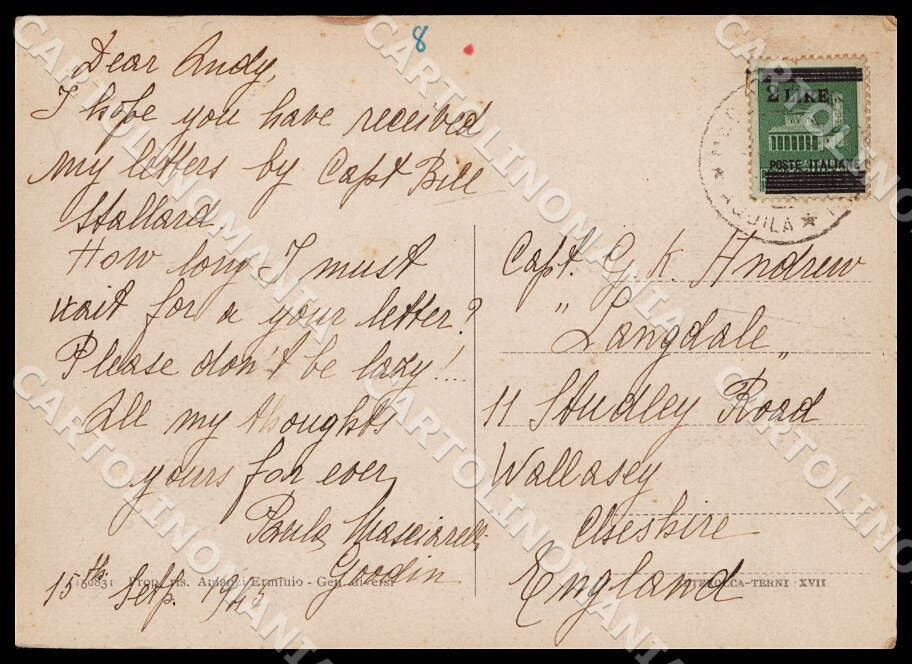 8
Dear Andy,
I hope you have received
my letters by Capt Bill
Stallard.
How long I must
wait for a your letter?
Please don't be lazy!...
All my thoughts
yours for ever
Paula Masciarelli
Goodin
15th Sept. 1945
2 LIRE
POSTE ITALIANE
AQUILA
Capt. G. K. Andrew
"Langdale"
11 Studley Road
Wallasey
Cheshire
England
Prop. ris. Erminio - Gen. diversi
TERNI XVII
CARTOLINOMANIA